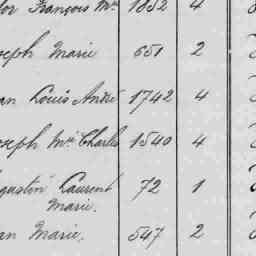 François Mie 1852 4
oseph Marie 651 2
an Louis André 1742 4
oseph Mie Charles 1540 4
gustin Laurent 72 1
Marie.
an Marie. 547 2